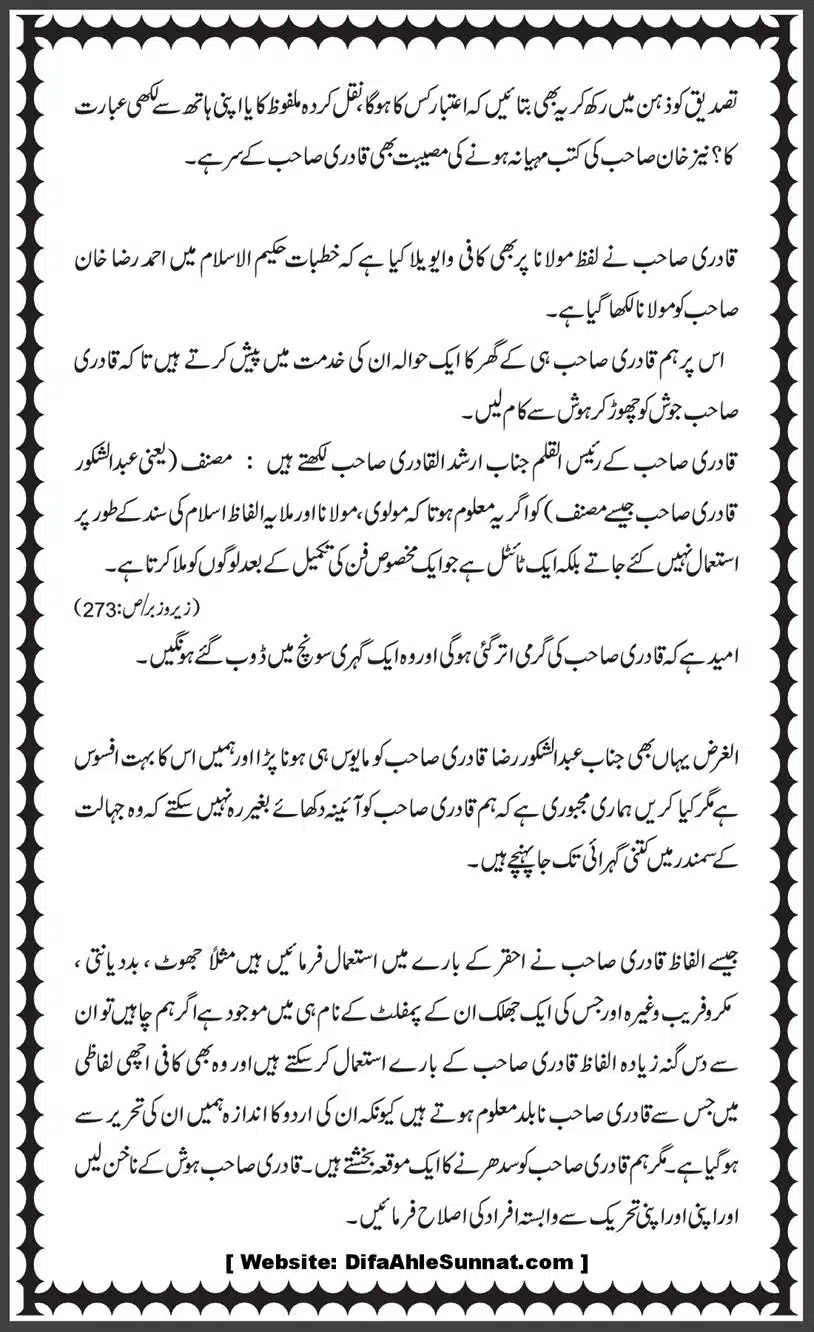 تصدیق کو ذہن میں رکھ کر یہ بھی بتائیں کہ اعتبار کس کا ہوگا، نقل کردہ ملفوظ کا یا اپنی ہاتھ سے لکھی عبارت
کا؟ نیز خان صاحب کی کتب مہیا نہ ہونے کی مصیبت بھی قادری صاحب کے سر ہے۔
قادری صاحب نے لفظ مولانا پر بھی کافی واویلا کیا ہے کہ خطبات حکیم الاسلام میں احمد رضا خان
صاحب کو مولانا لکھا گیا ہے۔
اس پر ہم قادری صاحب ہی کے گھر کا ایک حوالہ ان کی خدمت میں پیش کرتے ہیں تا کہ قادری
صاحب جوش کو چھوڑ کر ہوش سے کام لیں۔
قادری صاحب کے رئیس القلم جناب ارشد القادری صاحب لکھتے ہیں : مصنف (یعنی عبدالشکور
قادری صاحب جیسے مصنف) کو اگر یہ معلوم ہوتا کہ مولوی، مولانا اور ملا یہ الفاظ اسلام کی سند کے طور پر
استعمال نہیں کئے جاتے بلکہ ایک ٹائٹل ہے جو ایک مخصوص فن کی تکمیل کے بعد لوگوں کو ملا کرتا ہے۔
(زیر و زبر/ص:273)
امید ہے کہ قادری صاحب کی گرمی اتر گئی ہوگی اور وہ ایک گہری سونچ میں ڈوب گئے ہونگیں۔
الغرض یہاں بھی جناب عبدالشکور رضا قادری صاحب کو مایوس ہی ہونا پڑا اور ہمیں اس کا بہت افسوس
ہے مگر کیا کریں ہماری مجبوری ہے کہ ہم قادری صاحب کو آئینہ دکھائے بغیر رہ نہیں سکتے کہ وہ جہالت
کے سمندر میں کتنی گہرائی تک جا پہنچے ہیں۔
جیسے الفاظ قادری صاحب نے احقر کے بارے میں استعمال فرمائیں ہیں مثلاً جھوٹ ، بددیانتی ،
مکر و فریب وغیرہ اور جس کی ایک جھلک ان کے پمفلٹ کے نام ہی میں موجود ہے اگر ہم چاہیں تو ان
سے دس گنہ زیادہ الفاظ قادری صاحب کے بارے استعمال کر سکتے ہیں اور وہ بھی کافی اچھی لفاظی
میں جس سے قادری صاحب نابلد معلوم ہوتے ہیں کیونکہ ان کی اردو کا اندازہ ہمیں ان کی تحریر سے
ہوگیا ہے۔ مگر ہم قادری صاحب کو سدھرنے کا ایک موقعہ بخشتے ہیں۔ قادری صاحب ہوش کے ناخن لیں
اور اپنی اور اپنی تحریک سے وابستہ افراد کی اصلاح فرمائیں۔
[ Website: DifaAhleSunnat.com ]